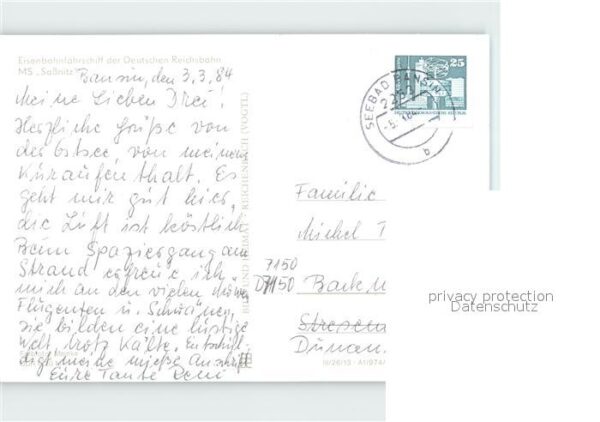 Eisenbahnfährschiff der Deutschen Reichsbahn
MS „Saßnitz"
Bansin, den 3.3.84
Meine Lieben Drei!
Herzliche Grüße von
der Ostsee, von meinem
Kuraufenthalt. Es
geht mir gut hier,
die Luft ist köstlich
Beim Spaziergang am
Strand erfreue ich
mich an den vielen Möwen
Flugenten u. Schwänen,
sie bilden eine lustige
Welt, trotz Kälte. Entschul-
digt meine miese
Eure Tante
BILD UND HEIMAT REICHENBACH (VOGTL)
III/26/13 A1/974/
SEEBAD BANSIN
2255
-5.
b
25
Familie
Michel T
7150
Düman.
privacy protection
Datenschutz